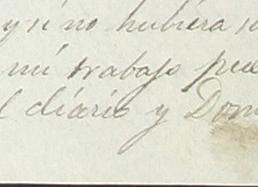 y si no hubiera
mi trabajo pue
l diario y Dom